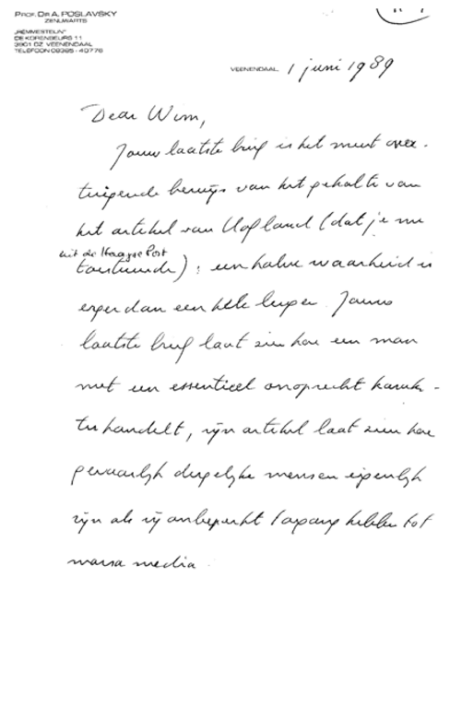 PROF. DR A. POSLAVSKY
ZENUWARTS
"KEMMESTEIJN"
DE KORENBEURS 11
3901 DZ VEENENDAAL
TELEFOON 08385 - 40776
VEENENDAAL 1 juni 1989
Dear Wim,
Jouw laatste brief is het meest over-
tuigende bewijs van het gehalte van
het artikel van Hofland (dat je me
uit de Haagse Post
toestuurde); een halve waarheid is
erger dan een hele leugen. Jouw
laatste brief laat zien hoe een man
met een essentieel onoprecht karak-
ter handelt, zijn artikel laat zien hoe
gevaarlijk dergelijke mensen eigenlijk
zijn als zij onbeperkt toegang hebben tot
massa media.